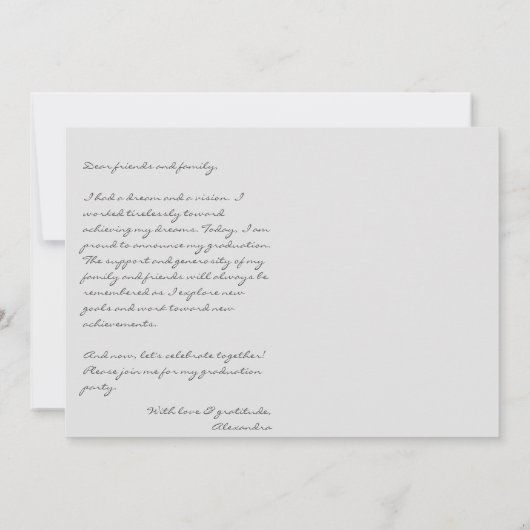 Dear friends and family,
I had a dream and a vision. I
worked tirelessly toward
achieving my dreams. Today, I am
proud to announce my graduation.
The support and generosity of my
family and friends will always be
remembered as I explore new
goals and work toward new
achievements.
And now, let's celebrate together!
Please join me for my graduation
party.
With love & gratitude,
Alexandra